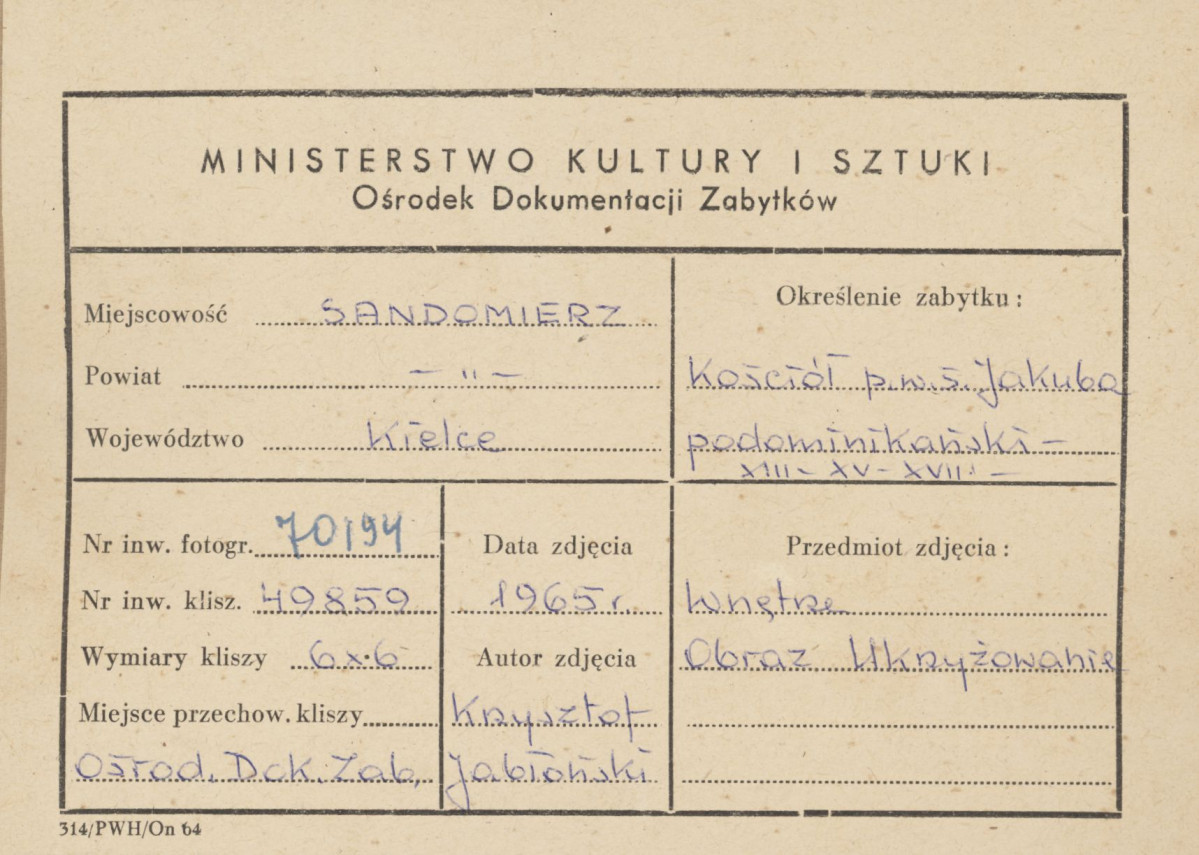 MINISTERSTWO KULTURY I SZTUKI
Ośrodek Dokumentacji Zabytków
Miejscowość SANDOMIERZ
Powiat — " —
Województwo Kielce
Określenie zabytku:
Kościół p.w.ś. Jakuba
podominikański —
XIII - XV - XVIII —
Nr inw. fotogr. 70194
Nr inw. klisz. 49859
Wymiary kliszy 6x6
Miejsce przechow. kliszy
Ośrod. Dok. Zab.
Data zdjęcia
1965 r.
Autor zdjęcia
Krzysztof
Jabłoński
Przedmiot zdjęcia:
Wnętrze
Obraz Ukrzyżowanie
314/PWH/On 64